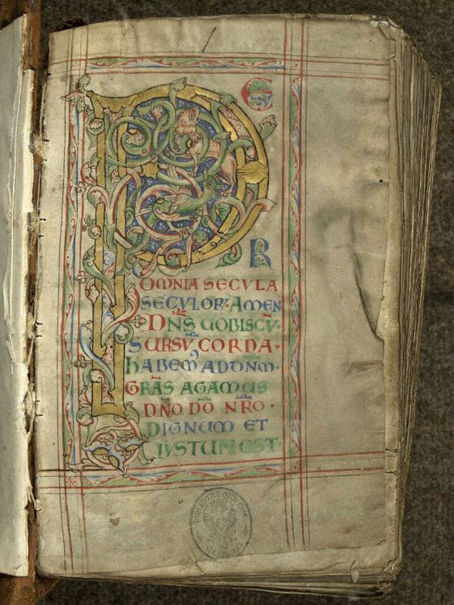 PER
OMNIA SECVLA
SECVLOR· AMEN
DN̄S UOBISCV̄·
SURSV̄ CORDA·
hABEM᾽ AD DN̄M·
GRĀS AGAMUS
DN̄O DŌ NR̄O·
DIGNUM ET
IVSTUM EST